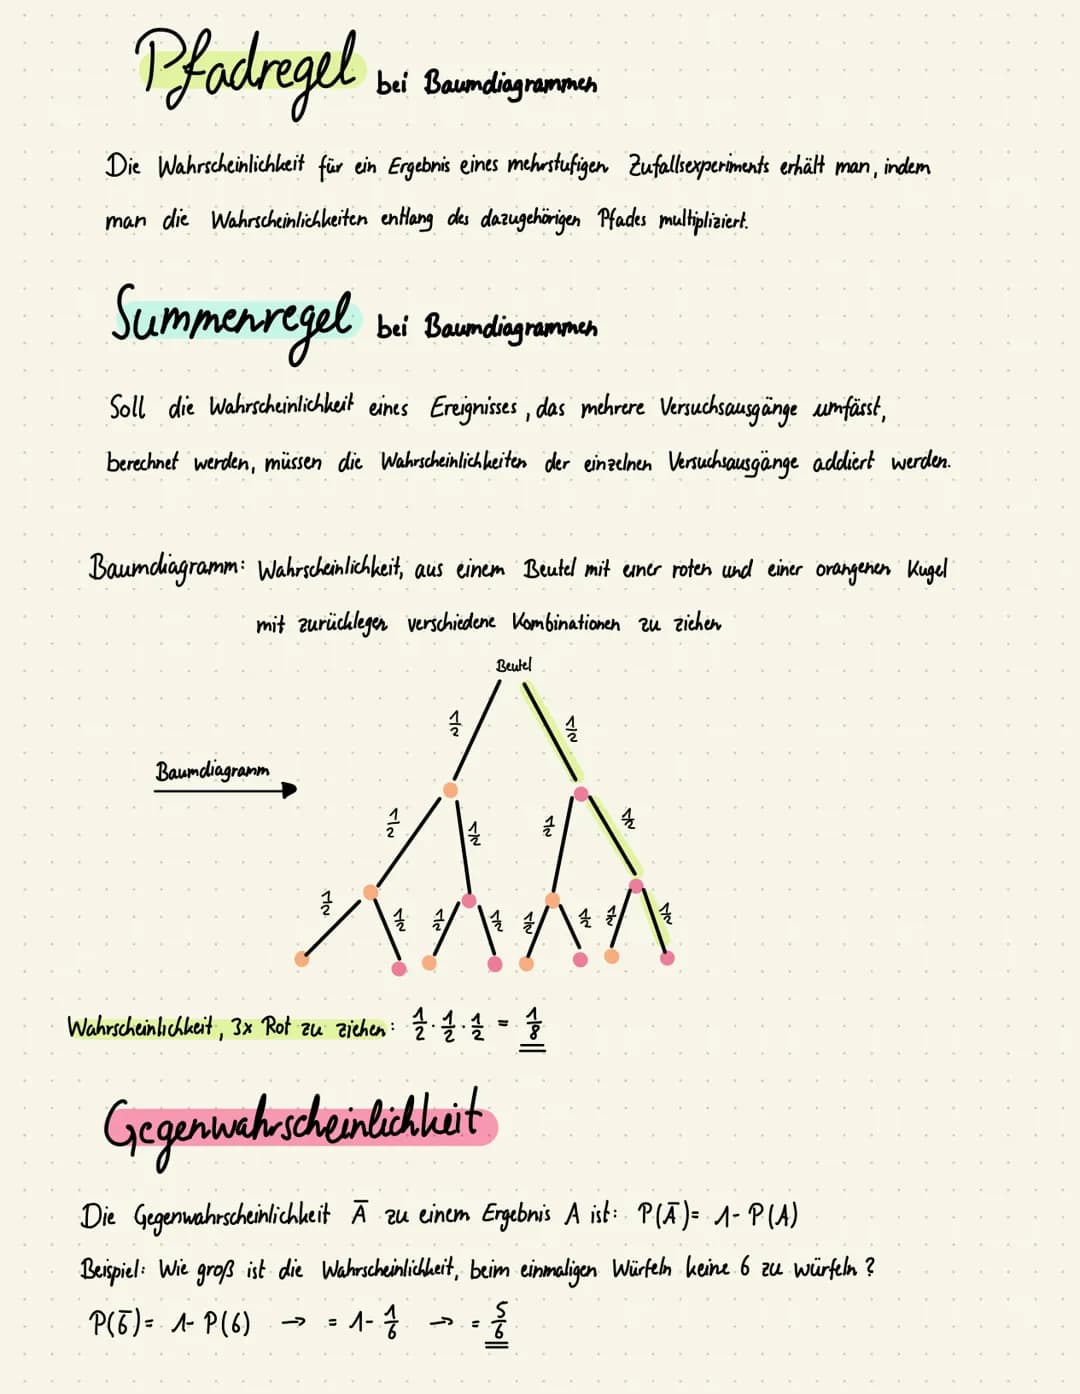 Pfadregel bei Baumdiagrammen
Die Wahrscheinlichkeit für ein Ergebnis eines mehrstufigen Zufallsexperiments erhält man, indem
man die Wahrscheinlichkeiten entlang des dazugehörigen Pfades multipliziert.
Summenregel bei Baumdiagrammen
Soll die Wahrscheinlichkeit eines Ereignisses, das mehrere Versuchsausgänge umfässt,
berechnet werden, müssen die Wahrscheinlichkeiten der einzelnen Versuchsausgänge addiert werden.
Baumdiagramm: Wahrscheinlichkeit, aus einem Beutel mit einer roten und einer orangenen Kugel
mit zurücklegen verschiedene Kombinationen zu ziehen
Beutel
1/2 1/2
Baumdiagramm
1/2 1/2 1/2 1/2
1/2 1/2 1/2 1/2 1/2 1/2 1/2 1/2
Wahrscheinlichkeit, 3x Rot zu ziehen: 1/2 · 1/2 · 1/2 = 1/8
Gegenwahrscheinlichkeit
Die Gegenwahrscheinlichkeit Ā zu einem Ergebnis A ist: P(Ā) = 1 - P(A)
Beispiel: Wie groß ist die Wahrscheinlichkeit, beim einmaligen Würfeln keine 6 zu würfeln?
P(6̄) = 1 - P(6) → = 1 - 1/6 → = 5/6